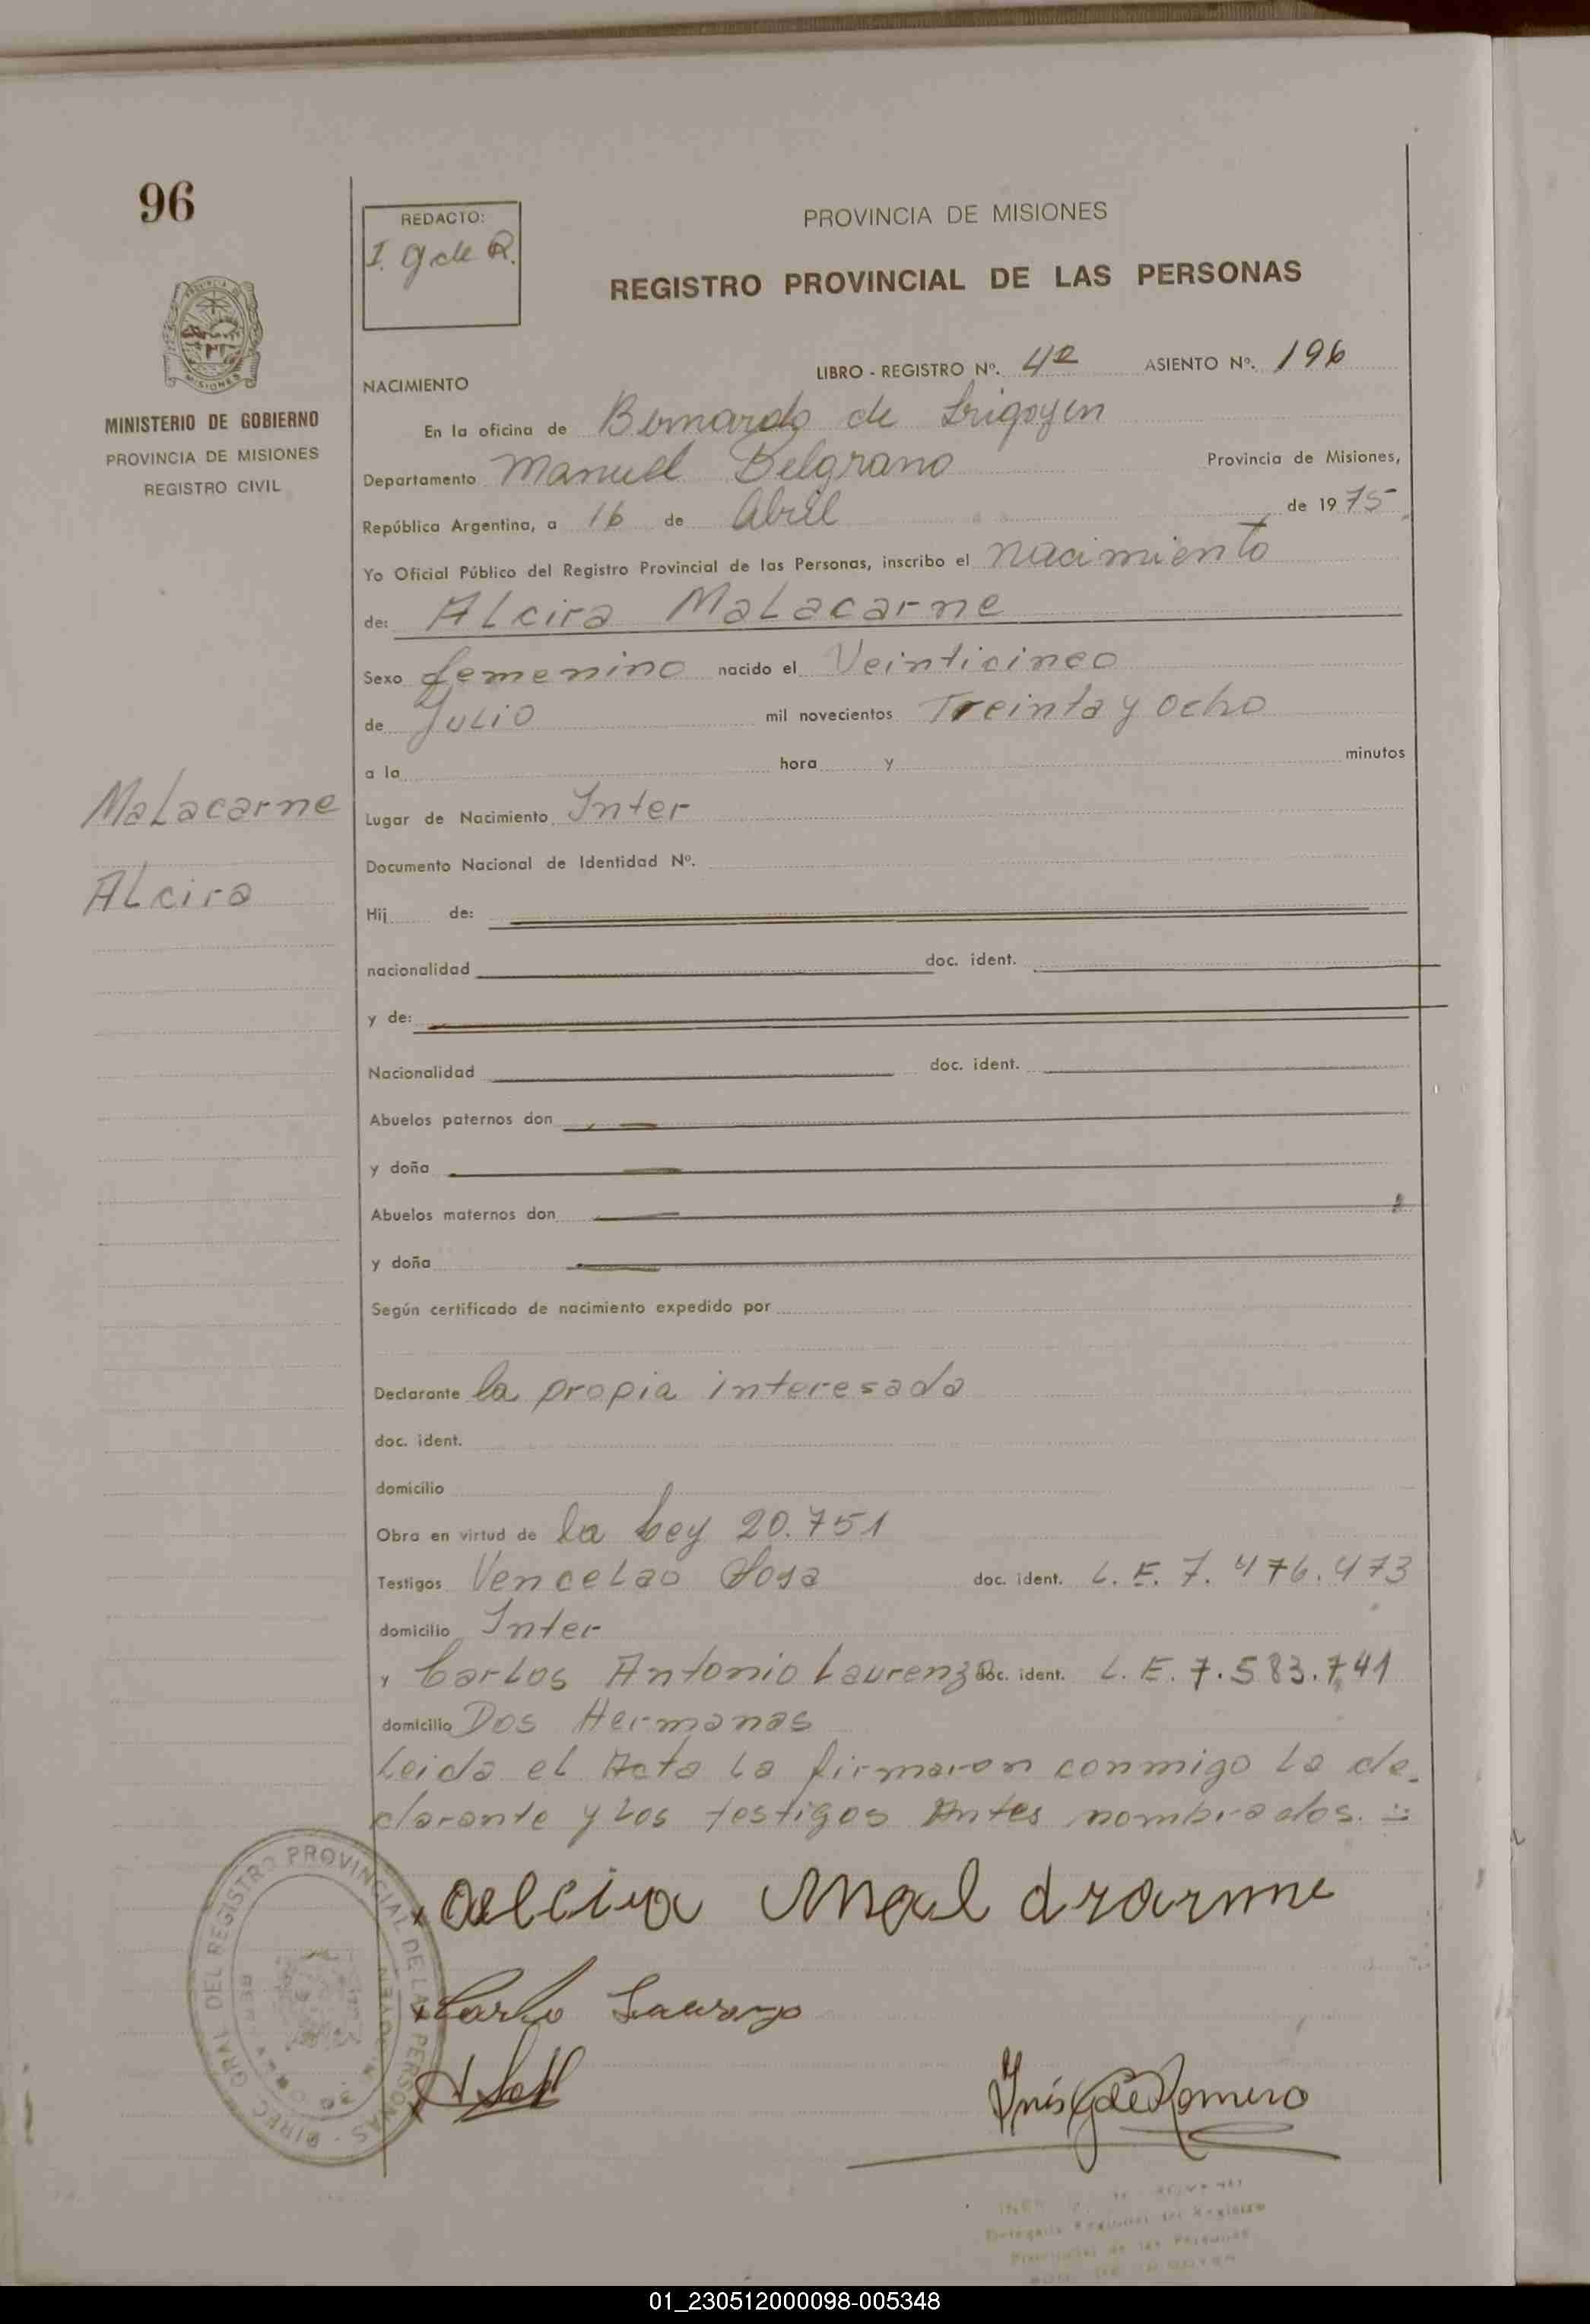 96
REDACTO:
I. G de R.
PROVINCIA DE MISIONES
REGISTRO PROVINCIAL DE LAS PERSONAS
MISIONES
MINISTERIO DE GOBIERNO
PROVINCIA DE MISIONES
REGISTRO CIVIL
LIBRO - REGISTRO Nº. 42 ASIENTO Nº. 196
NACIMIENTO
En la oficina de Bernardo de Irigoyen
Departamento Manuel Belgrano Provincia de Misiones,
República Argentina, a 16 de Abril de 1975
Yo Oficial Público del Registro Provincial de las Personas, inscribo el nacimiento
de: Alcira Malacarne
Sexo femenino nacido el Veinticinco
de Julio mil novecientos Treinta y ocho
a la hora y minutos
Malacarne
Alcira
Lugar de Nacimiento Inter
Documento Nacional de Identidad Nº.
Hij de:
nacionalidad doc. ident.
y de:
Nacionalidad doc. ident.
Abuelos paternos don
y doña
Abuelos maternos don
y doña
Según certificado de nacimiento expedido por
Declarante la propia interesada
doc. ident.
domicilio
Obra en virtud de la Ley 20.751
Testigos Vencelao Sosa doc. ident. L.E. 7.476.473
domicilio Inter
y Carlos Antonio Laurenzo doc. ident. L.E. 7.583.741
domicilio Dos Hermanas
Leida el Acta la firmaron conmigo la de-
clarante y los testigos Antes nombrados.
DIREC. GRAL DEL REGISTRO PROVINCIAL DE LAS PERSONAS
Carlo
Inés G de Romero
Delegada Regional del Registro
Provincial de las Personas
01_230512000098-005348